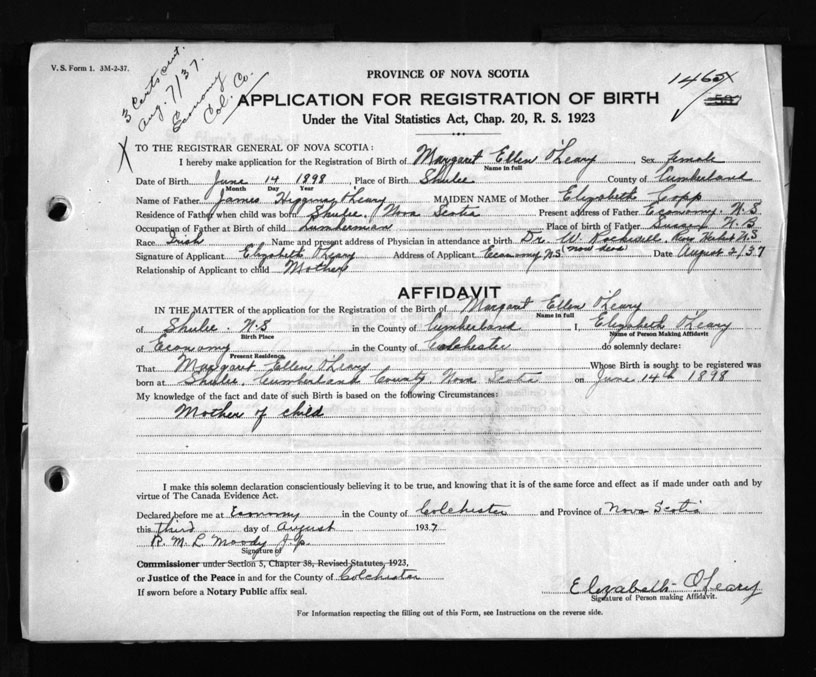 V. S. Form 1. 3M-2-37.
3 Certs out.
Aug. 7/37.
Economy
Col. Co.
PROVINCE OF NOVA SCOTIA
APPLICATION FOR REGISTRATION OF BIRTH
Under the Vital Statistics Act, Chap. 20, R. S. 1923
TO THE REGISTRAR GENERAL OF NOVA SCOTIA:
I hereby make application for the Registration of Birth of Margaret Ellen O'Leary, Sex female
Name in full
Date of Birth June 14 1898, Place of Birth Shulee County of Cumberland
Month Day Year
Name of Father James O'Leary MAIDEN NAME of Mother Elizabeth Copp
Residence of Father when child was born Shulee, Nova Scotia Present address of Father Economy, N.S
Occupation of Father at Birth of child Lumberman Place of birth of Father Sussex N.B
Race Irish Name and present address of Physician in attendance at birth Dr. W. Rockwell, River Hebert N.S
(now dead)
Signature of Applicant Elizabeth O'Leary Address of Applicant Economy N.S Date August 3/37
Relationship of Applicant to child Mother
AFFIDAVIT
IN THE MATTER of the application for the Registration of the Birth of Margaret Ellen O'Leary
Name in full
of Shulee. N.S in the County of Cumberland I, Elizabeth O'Leary
Birth Place Name of Person Making Affidavit
of Economy in the County of Colchester do solemnly declare:
Present Residence
That Margaret Ellen O'Leary Whose Birth is sought to be registered was
born at Shulee, Cumberland County, Nova Scotia on June 14th 1898
My knowledge of the fact and date of such Birth is based on the following Circumstances:
Mother of child
I make this solemn declaration conscientiously believing it to be true, and knowing that it is of the same force and effect as if made under oath and by
virtue of The Canada Evidence Act.
Declared before me at Economy in the County of Colchester and Province of Nova Scotia
this third day of August 1937
R. M. L. Moody J.P.
Signature of
Commissioner under Section 5, Chapter 38, Revised Statutes, 1923,
or Justice of the Peace in and for the County of Colchester
If sworn before a Notary Public affix seal.
Elizabeth O'Leary
Signature of Person making Affidavit.
For Information respecting the filling out of this Form, see Instructions on the reverse side.